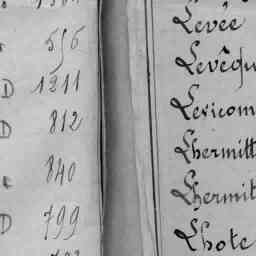 556
D 1211
D 812
840
D 799
Levée
Levêqu
Levicom
Lhermitt
Lhermit
Lhote